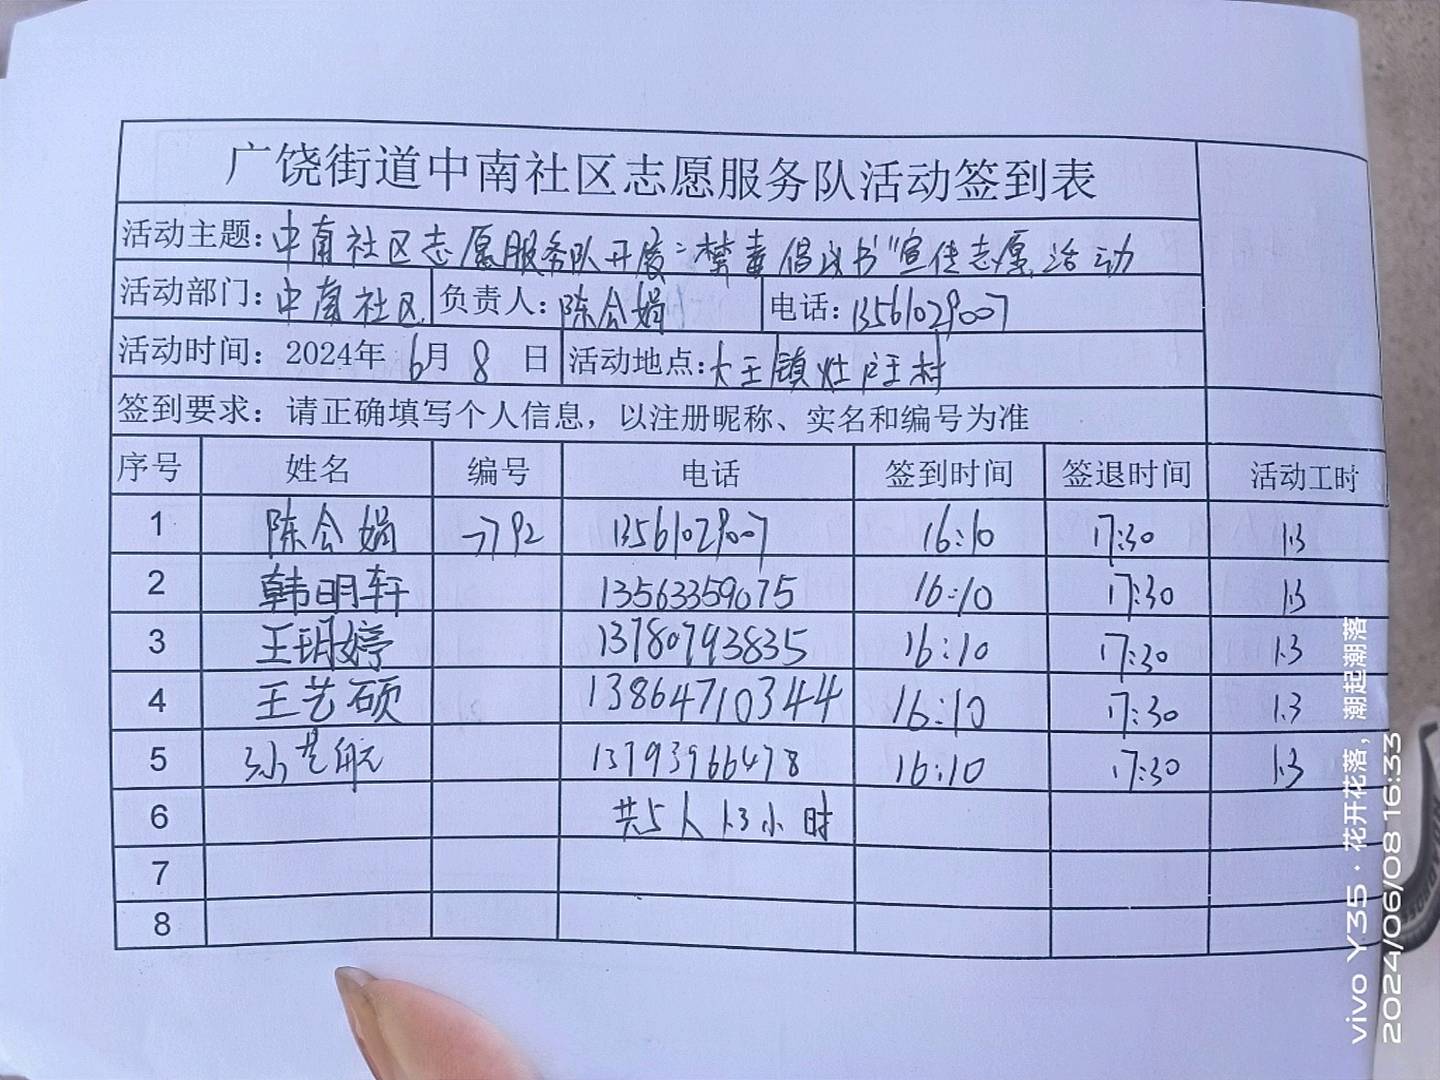 广饶街道中南社区志愿服务队活动签到表
活动主题：中南社区志愿服务队开展“禁毒倡议书”宣传志愿活动
活动部门：中南社区 负责人：陈会娟 电话：13561029007
活动时间：2024年6月8日 活动地点：大王镇灶户王村
签到要求：请正确填写个人信息，以注册昵称、实名和编号为准
序号 姓名 编号 电话 签到时间 签退时间 活动工时
1 陈会娟 7792 13561029007 16:10 17:30 1.3
2 韩明轩 13563359075 16:10 17:30 1.3
3 王玥婷 13780793835 16:10 17:30 1.3
4 王艺硕 13864710344 16:10 17:30 1.3
5 孙艺航 13793966478 16:10 17:30 1.3
6 共5人 1.3小时
7
8
vivo Y35 · 花开花落，潮起潮落
2024/06/08 16:33